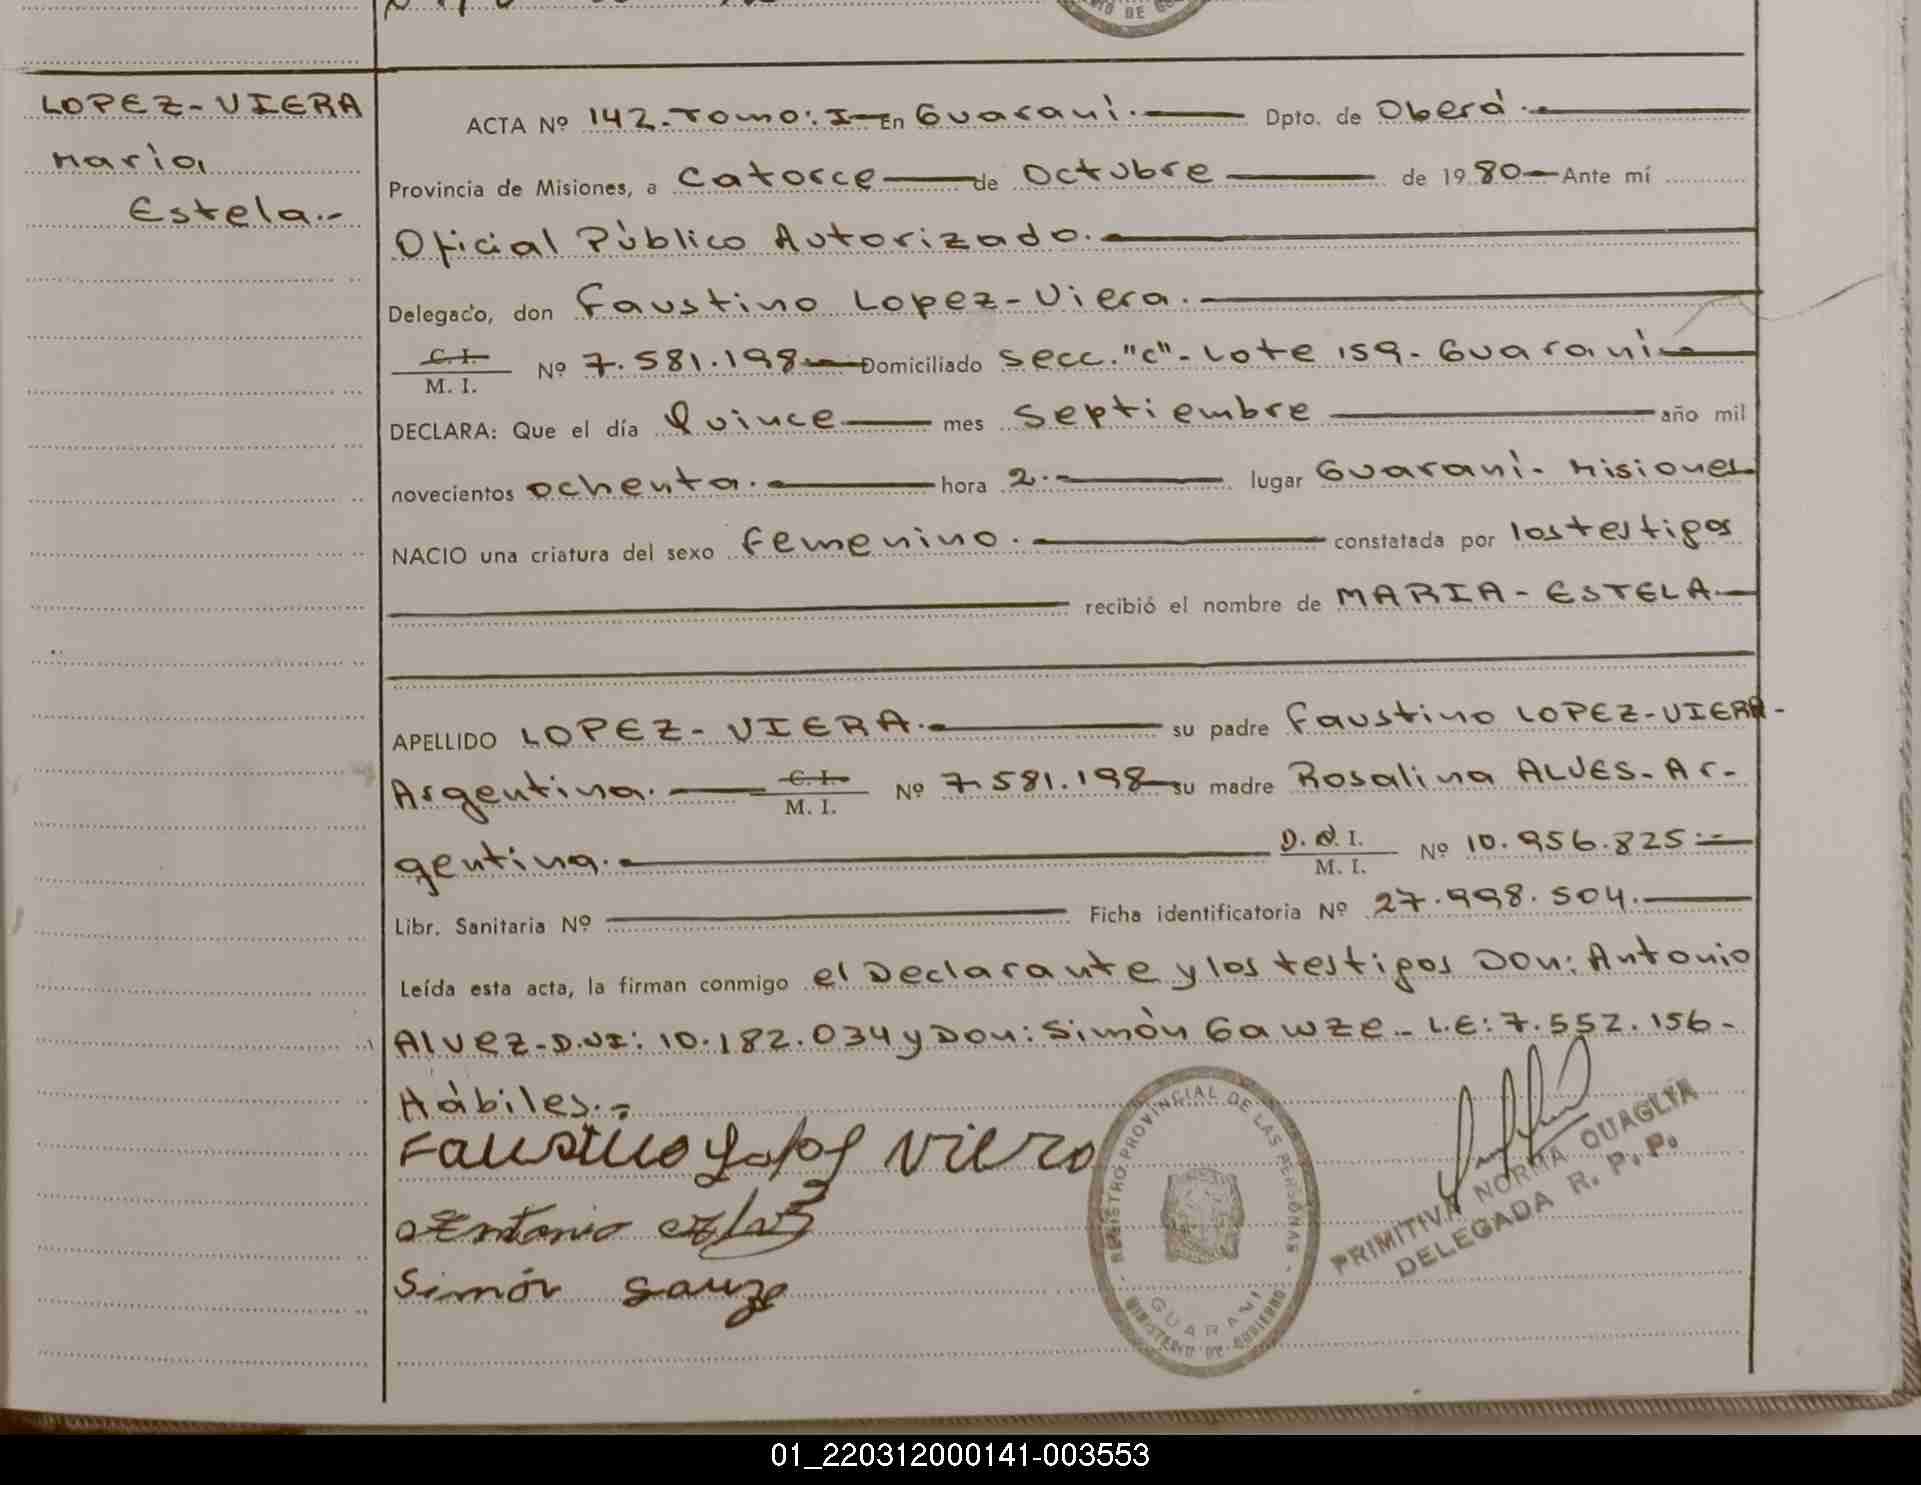 LOPEZ-VIERA
Maria
Estela.-
ACTA Nº 142.Tomo: I En Guaraní. Dpto. de Oberá.
Provincia de Misiones, a catorce de Octubre de 1980 Ante mí
Oficial Público Autorizado.
Delegado, don Faustino Lopez-Viera.
C. I.
M. I. Nº 7.581.198 Domiciliado Secc."C"-Lote 159-Guaraní
DECLARA: Que el día Quince mes Septiembre año mil
novecientos ochenta. hora 2. lugar Guaraní-Misiones
NACIO una criatura del sexo Femenino. constatada por los testigos
recibió el nombre de MARIA-ESTELA.
APELLIDO LOPEZ-VIERA. su padre Faustino LOPEZ-VIERA-
Argentina. C. I.
M. I. Nº 7.581.198 su madre Rosalina ALVES-Ar-
gentina. D. N. I.
M. I. Nº 10.956.825:-
Libr. Sanitaria Nº Ficha identificatoria Nº 27.998.504.
Leída esta acta, la firman conmigo el Declarante y los testigos Don: Antonio
Alvez-D.NI: 10.182.034 y Don: Simón Gawze-L.E: 7.552.156-
Hábiles.-
Faustino Lopez Viera
Antonio
Simón Gauze
REGISTRO PROVINCIAL DE LAS PERSONAS
GUARANI
MINISTERIO DE GOBIERNO
PRIMITIVA NORMA QUAGLIA
DELEGADA R. P. P.
01_220312000141-003553